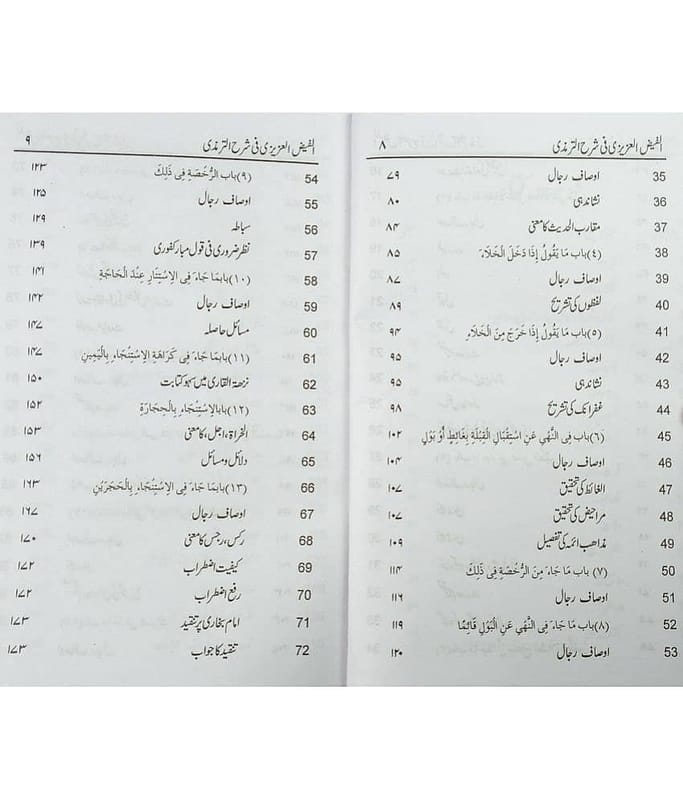 الفیض العزیزی فی شرح الترمذی ۸
35 اوصاف رجال ۷۹
36 نشاندہی ۸۰
37 مقارب الحدیث کا معنی ۸۴
38 (۴) باب مَا یَقُولُ إِذَا دَخَلَ الْخَلَاءَ ۸۵
39 اوصاف رجال ۸۷
40 لفظوں کی تشریح ۸۹
41 (۵) باب مَا یَقُولُ إِذَا خَرَجَ مِنَ الْخَلَاءِ ۹۴
42 اوصاف رجال ۹۵
43 نشاندہی ۹۵
44 غفرانک کی تشریح ۹۸
45 (۶) باب فِی النَّهْیِ عَنِ اسْتِقْبَالِ الْقِبْلَةِ بِغَائِطٍ أَوْ بَوْلٍ ۱۰۲
46 اوصاف رجال ۱۰۴
47 الغائط کی تحقیق ۱۰۷
48 مراحیض کی تحقیق ۱۰۷
49 مذاهب ائمہ کی تفصیل ۱۰۹
50 (۷) باب مَا جَاءَ مِنَ الرُّخْصَةِ فِی ذَلِكَ ۱۱۴
51 اوصاف رجال ۱۱۶
52 (۸) باب مَا جَاءَ فِی النَّهْیِ عَنِ الْبَوْلِ قَائِمًا ۱۱۹
53 اوصاف رجال ۱۲۰
الفیض العزیزی فی شرح الترمذی ۹
54 (۹) باب الرُّخْصَةِ فِی ذَلِكَ ۱۲۳
55 اوصاف رجال ۱۲۵
56 سباطہ ۱۲۹
57 نظر ضروری فی قول مبارکفوری ۱۳۹
58 (۱۰) بابمَا جَاءَ فِی الِاسْتِتَارِ عِنْدَ الْحَاجَةِ ۱۴۱
59 اوصاف رجال ۱۴۲
60 مسائل حاصلہ ۱۴۷
61 (۱۱) بابمَا جَاءَ فِی كَرَاهَةِ الِاسْتِنْجَاءِ بِالْیَمِینِ ۱۴۷
62 نزھۃ القاری میں سہو کتابت ۱۵۰
63 (۱۲) بابالِاسْتِنْجَاءِ بِالْحِجَارَةِ ۱۵۲
64 الخراۃ، اجل، کا معنی ۱۵۳
65 دلائل و مسائل ۱۵۶
66 (۱۳) بابمَا جَاءَ فِی الِاسْتِنْجَاءِ بِالْحَجَرَیْنِ ۱۶۳
67 اوصاف رجال ۱۶۷
68 رکس، رجس کا معنی ۱۷۰
69 کیفیت اضطراب ۱۷۲
70 رفع اضطراب ۱۷۲
71 امام بخاری پر تنقید ۱۷۳
72 تنقید کا جواب ۱۷۳